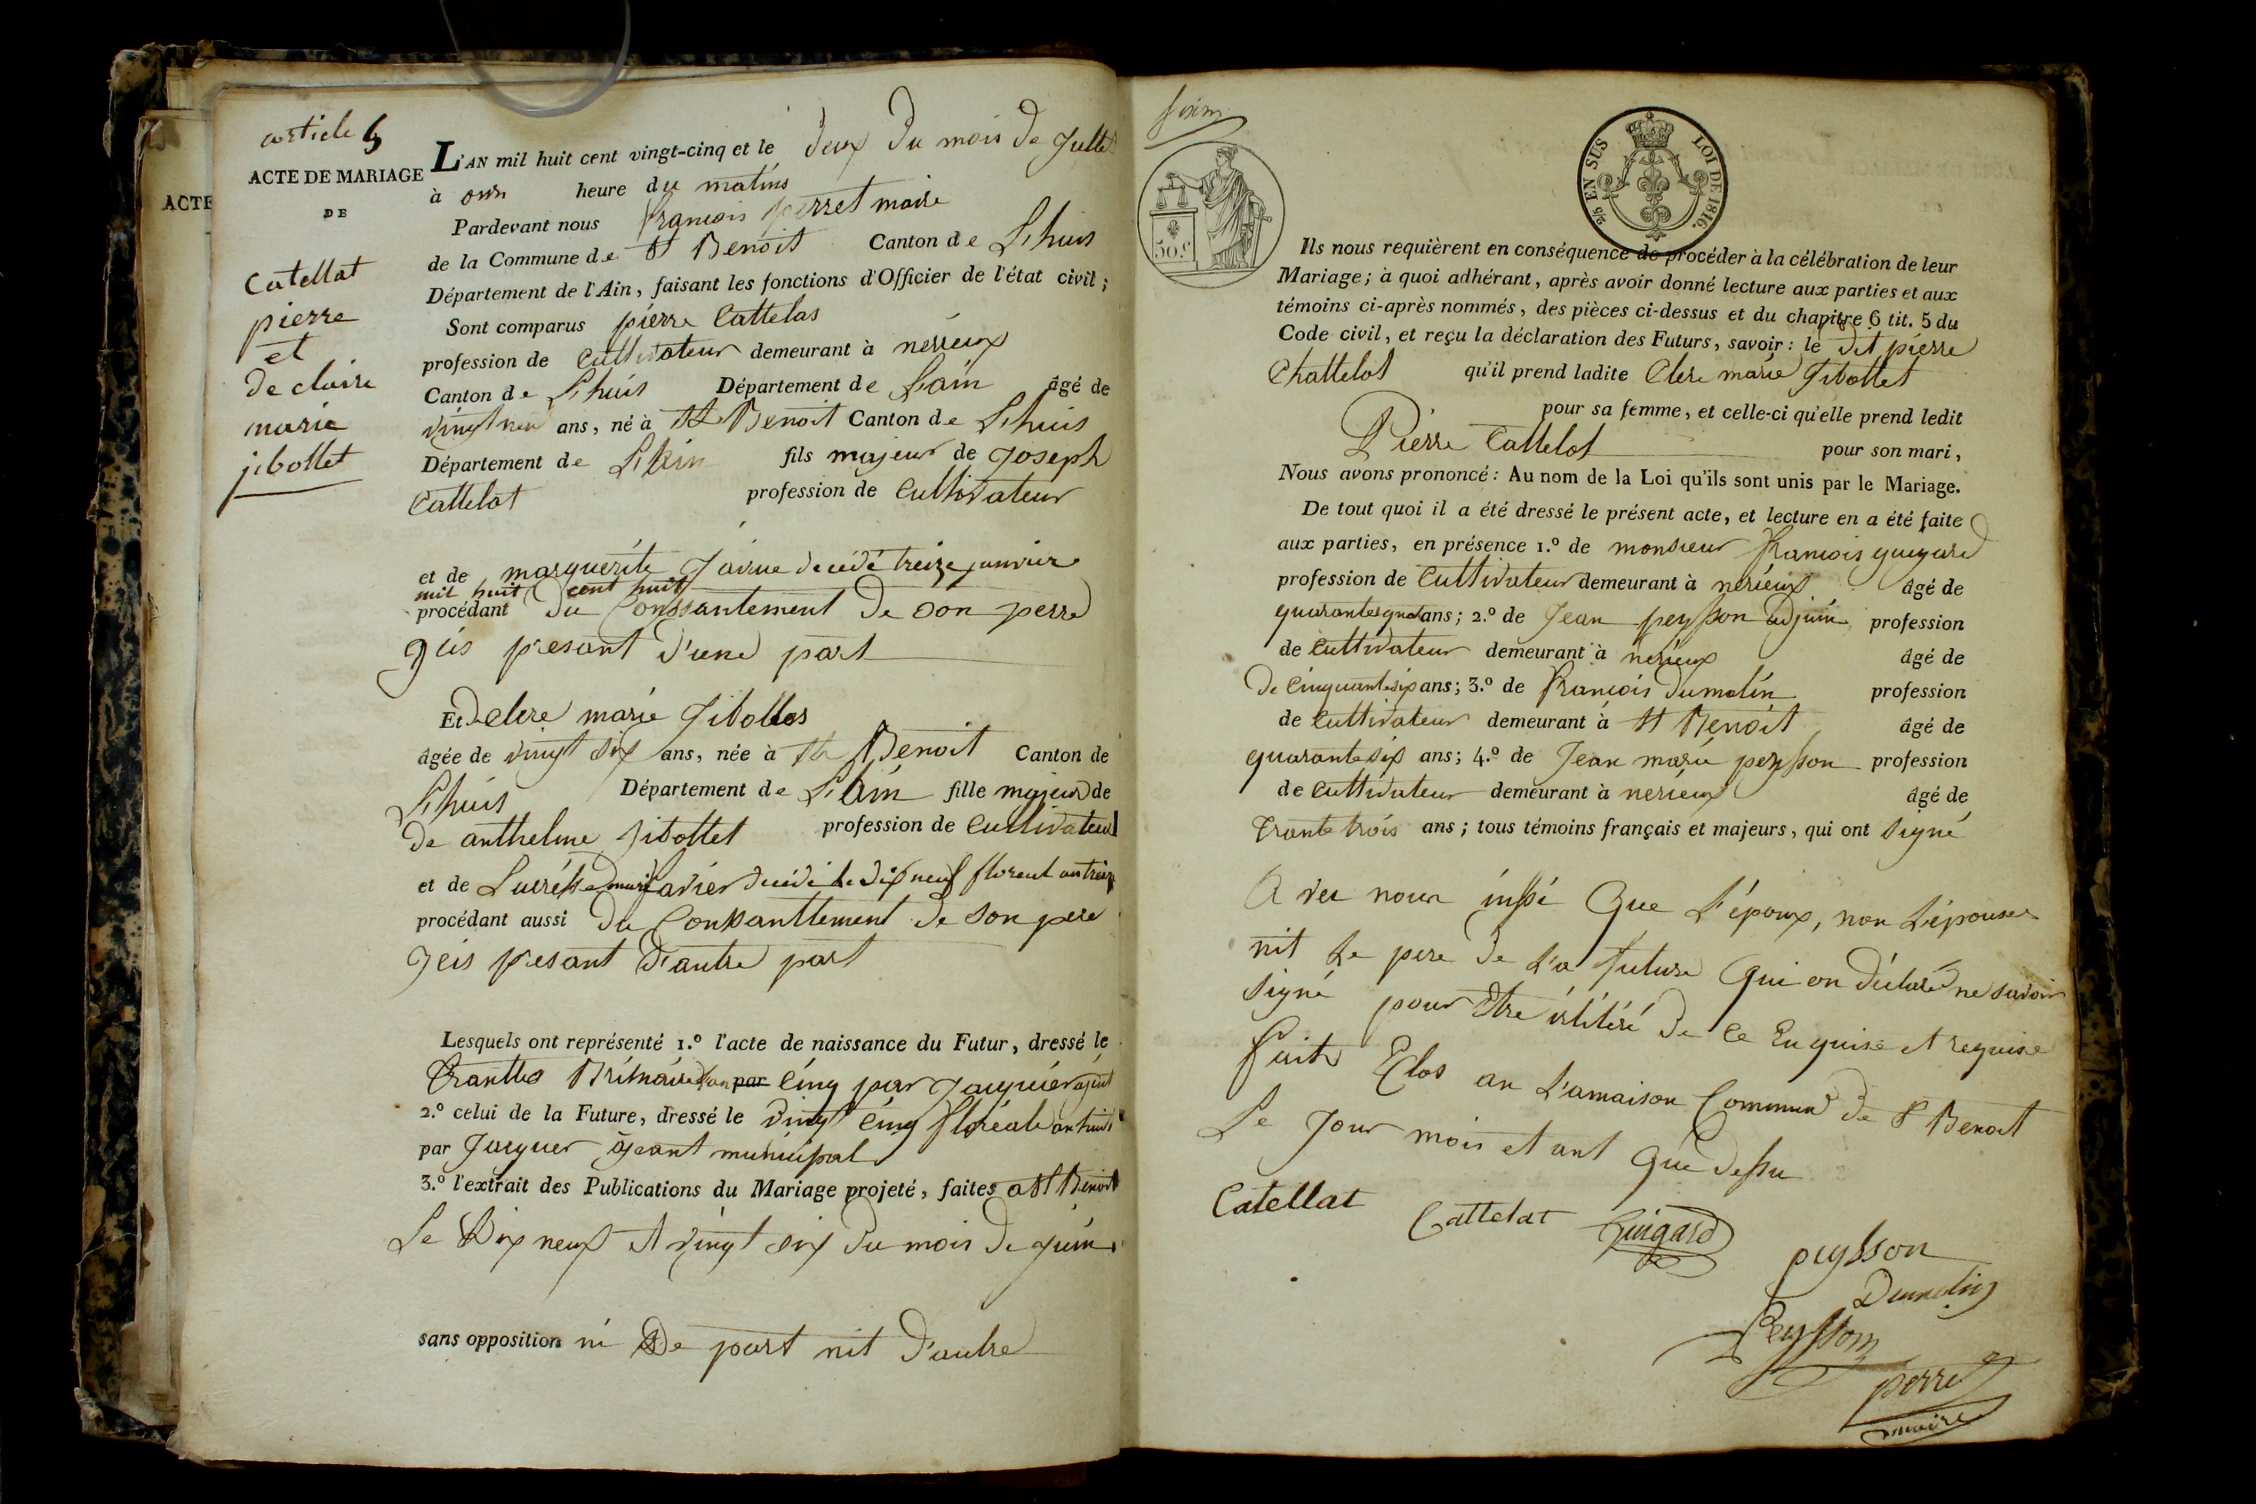 article 5
ACTE DE MARIAGE
DE
Catellat
pierre
et
de claire
marie
jibollet
ACTE
L'AN mil huit cent vingt-cinq et le deux du mois de Jullet
à heure du matins
Pardevant nous francois perret maire
de la Commune de St Benoit Canton de L'huis
Département de l'Ain, faisant les fonctions d'Officier de l'état civil;
Sont comparus pierre Cattelas
profession de Cultivateur demeurant à nérieux
Canton de L'huis Département de L'ain âgé de
vingt neu ans, né à St Benoit Canton de L'huis
Département de L'Ain fils majeur de Joseph
Cattelot profession de Cultivateur
et de marguerite decédé treize janvier
mil huit cent huit
procédant du Conssantement de son perre
isis presant d'une part
Et de clere marie Jibollos
âgée de vingt six ans, née à St Benoit Canton de
L'huis Département de L'Ain fille majeur de
de anthelme Jibollet profession de Cultivateur
et de decédé le dix neuf floreal an treize
procédant aussi du Consanttement de son pere
Jeis presant d'autre part
Lesquels ont représenté 1.º l'acte de naissance du Futur, dressé le
par Cinq par Jacquier
2.º celui de la Future, dressé le vingt Cinq floréale an huit
par Jacquer ageant municipal
3.º l'extrait des Publications du Mariage projeté, faites a St Benoit
Le Dix neuf et vingt six du mois de juin
sans opposition ni De part nit d'autre
50.c
2/5 EN SUS LOI DE 1816.
Ils nous requièrent en conséquence de procéder à la célébration de leur
Mariage; à quoi adhérant, après avoir donné lecture aux parties et aux
témoins ci-après nommés, des pièces ci-dessus et du chapitre 6 tit. 5 du
Code civil, et reçu la déclaration des Futurs, savoir: le dit pierre
Chattelot qu'il prend ladite Clere marie Jibollet
pour sa femme, et celle-ci qu'elle prend ledit
Pierre Cattelot pour son mari,
Nous avons prononcé: Au nom de la Loi qu'ils sont unis par le Mariage.
De tout quoi il a été dressé le présent acte, et lecture en a été faite
aux parties, en présence 1.º de monsieur francois guigard
profession de Cultivateur demeurant à nerieux âgé de
ans; 2.º de Jean peysson adjoin profession
de Cultivateur demeurant à nerieux âgé de
de Cinquantesix ans; 3.º de francois Dumolin profession
de Cultivateur demeurant à St Benoit âgé de
quarantesix ans; 4.º de Jean marie peysson profession
de Cultivateur demeurant à nerieux âgé de
trante trois ans; tous témoins français et majeurs, qui ont signé
Avec nour inssi Que L'époux, non L'épouse
nit Le pere de L'a future Qui on déclaré ne savoir
signé pour Etre ilitéré de Ce Enquise et requise
fait Eclos an L'amaison Commun de St Benoit
Le Jour mois et ant Que Dessu
Catellat Cattelat Guigard peysson
Dumolin
Peysson
perret
maire